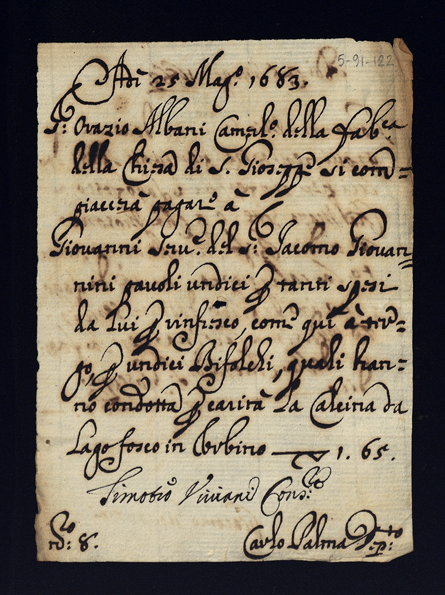 5-91-122
Adì 25 Mag.º 1683.
S.r Orazio Albani Camerl.º della Fab.ca
della Chiesa di S. Gioseppe si com=
piacerà pagare à
Giovanni Serv.re del S.r Jacomo Giovan=
nini pavoli undici p tanti spesi
da lui p rinfresco, come qui à ter=
go, p undici Bifolchi, quali han=
no condotta p carità la Calcina da
Lago fosco in Urbino 1. 65.
Timoteo Viviani Cons.re
nº: 8. Carlo Palma Dep.to